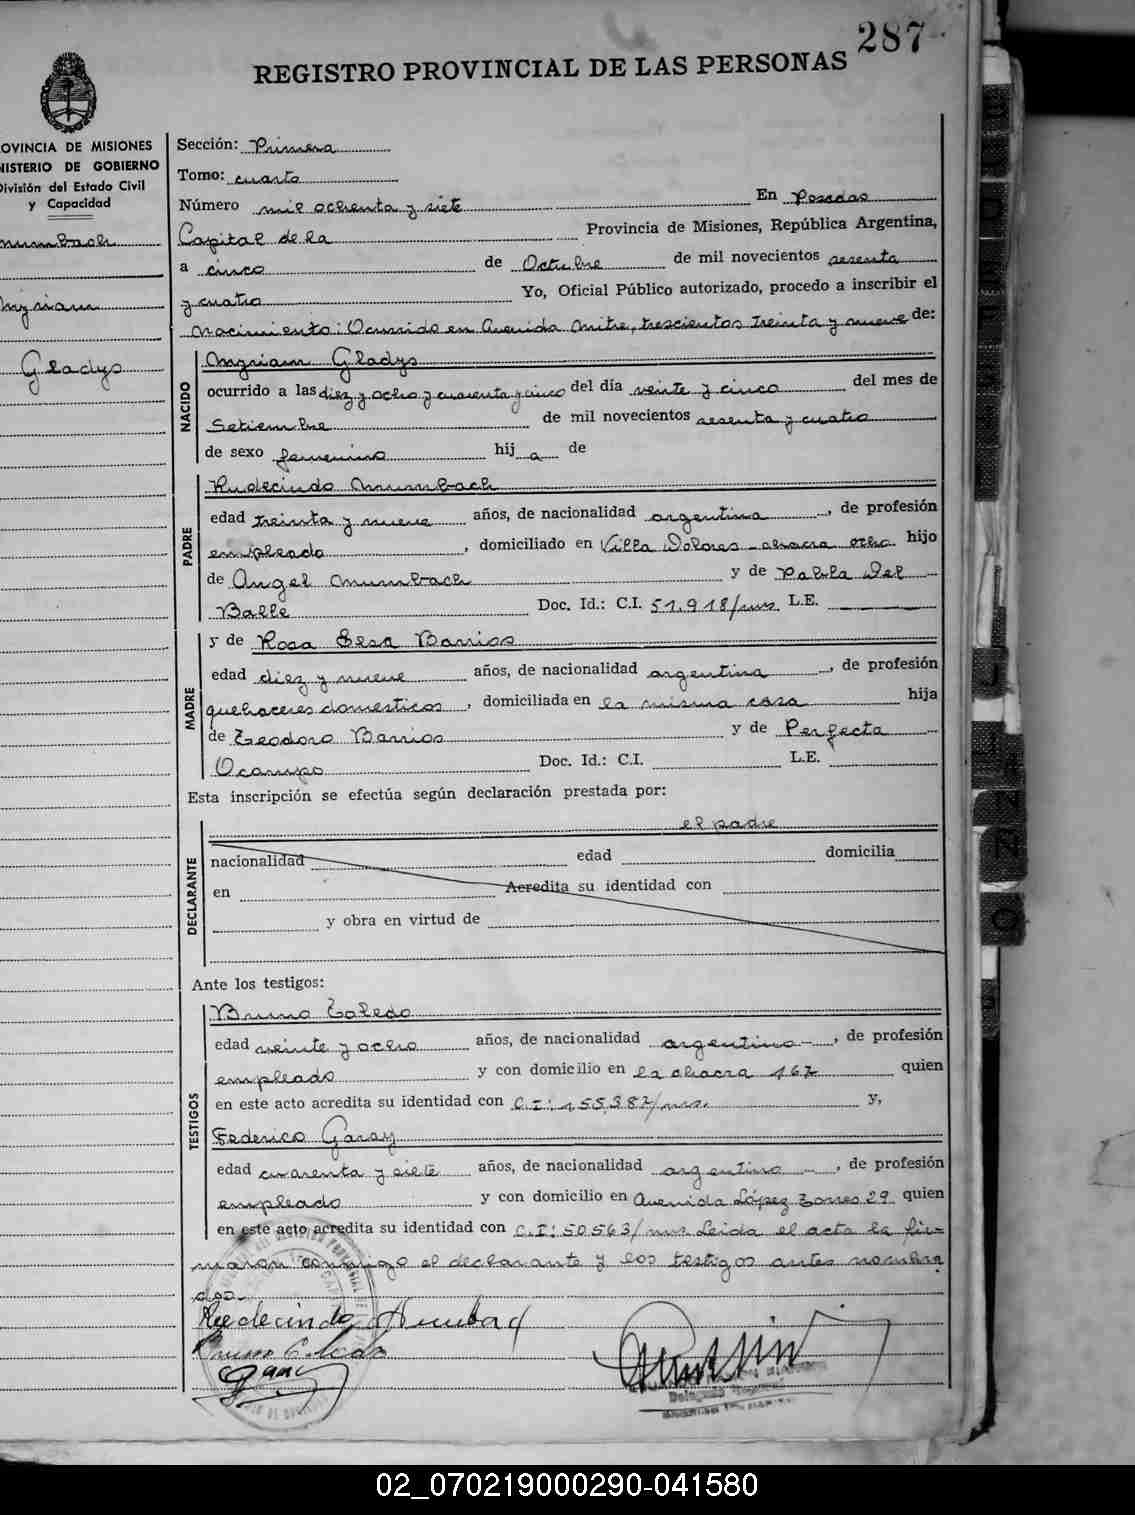 287
REGISTRO PROVINCIAL DE LAS PERSONAS
OVINCIA DE MISIONES
NISTERIO DE GOBIERNO
División del Estado Civil
y Capacidad
mumbach
Myriam
Gladys
Sección: Primera
Tomo: cuarto
Número mil ochenta y siete En Posadas
Capital de la Provincia de Misiones, República Argentina,
a cinco de Octubre de mil novecientos sesenta
y cuatro Yo, Oficial Público autorizado, procedo a inscribir el
nacimiento: Ocurrido en Avenida Mitre, trescientos treinta y nueve de:
NACIDO
Myriam Gladys
ocurrido a las diez y ocho y cuarenta y cinco del día veinte y cinco del mes de
Setiembre de mil novecientos sesenta y cuatro
de sexo femenino hij a de
PADRE
Rudecindo Mumbach
edad treinta y nueve años, de nacionalidad argentina, de profesión
empleado, domiciliado en Villa Dolores - chacra ocho. hijo
de Angel Mumbach y de Pabla Del
Balle Doc. Id.: C.I. 51.918/mns. L.E.
MADRE
y de Rosa Barrios
edad diez y nueve años, de nacionalidad argentina, de profesión
quehaceres domesticos, domiciliada en la misma casa hija
de Teodoro Barrios y de Perfecta
Ocampo Doc. Id.: C.I. L.E.
Esta inscripción se efectúa según declaración prestada por:
DECLARANTE
el padre
nacionalidad edad domicilia
en Acredita su identidad con
y obra en virtud de
Ante los testigos:
TESTIGOS
Bruno Toledo
edad veinte y ocho años, de nacionalidad argentino, de profesión
empleado y con domicilio en la chacra 167 quien
en este acto acredita su identidad con C.I: 155.387/mns. y,
Federico Garay
edad cuarenta y siete años, de nacionalidad argentino, de profesión
empleado y con domicilio en Avenida López Torres 29 quien
en este acto acredita su identidad con C.I: 50.563/mns. Leída el acta la fir-
maron conmigo el declarante y los testigos antes nombra
dos.
Rudecindo Mumbach
Bruno Toledo
Garay
02_070219000290-041580